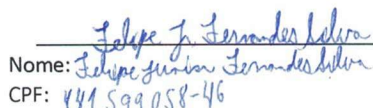 Felipe Jr Fernandes Silva
Nome: Felipe Junior Fernandes Silva
CPF: 441 599 058-46